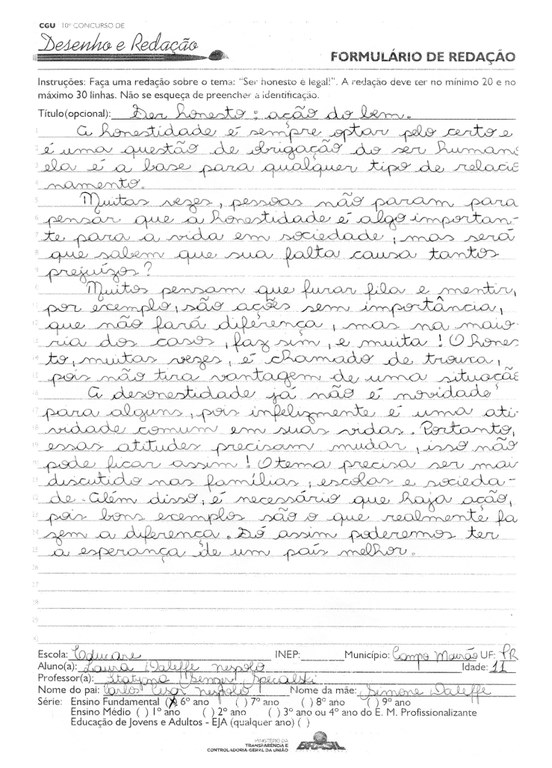 CGU 10º CONCURSO DE
Desenho e Redação
FORMULÁRIO DE REDAÇÃO
Instruções: Faça uma redação sobre o tema: "Ser honesto é legal!". A redação deve ter no mínimo 20 e no
máximo 30 linhas. Não se esqueça de preencher a identificação.
Título(opcional): Ser honesto: ação do bem.
A honestidade é sempre optar pelo certo e
é uma questão de obrigação do ser human
ela é a base para qualquer tipo de relacio
namento.
Muitas vezes, pessoas não param para
pensar que a honestidade é algo importan-
te para a vida em sociedade, mas será
que sabem que sua falta causa tantos
prejuízos?
Muitos pensam que furar fila e mentir,
por exemplo, são ações sem importância,
que não fará diferença, mas na maio
ria dos casos, faz sim, e muita! O hones
to, muitas vezes, é chamado de trouxa,
pois não tira vantagem de uma situação
A desonestidade já não é novidade
para alguns, pois infelizmente é uma ati
vidade comum em suas vidas. Portanto,
essas atitudes precisam mudar, isso não
pode ficar assim! O tema precisa ser mai
discutido nas famílias, escolas e socieda-
de. Além disso, é necessário que haja ação,
pois bons exemplos são o que realmente fa
zem a diferença. Só assim poderemos ter
a esperança de um país melhor.
Escola: Educare INEP: Município: Campo Mourão UF: PR
Aluno(a): Laura Daleffe Nespolo Idade: 11
Professor(a): Tatyana
Nome do pai: Carlos Cesar Nespolo Nome da mãe: Simone Daleffe
Série: Ensino Fundamental (X) 6º ano ( ) 7º ano ( ) 8º ano ( ) 9º ano
Ensino Médio ( ) 1º ano ( ) 2º ano ( ) 3º ano ou 4º ano do E. M. Profissionalizante
Educação de Jovens e Adultos - EJA (qualquer ano) ( )
MINISTÉRIO DA
TRANSPARÊNCIA E
CONTROLADORIA-GERAL DA UNIÃO
BRASIL